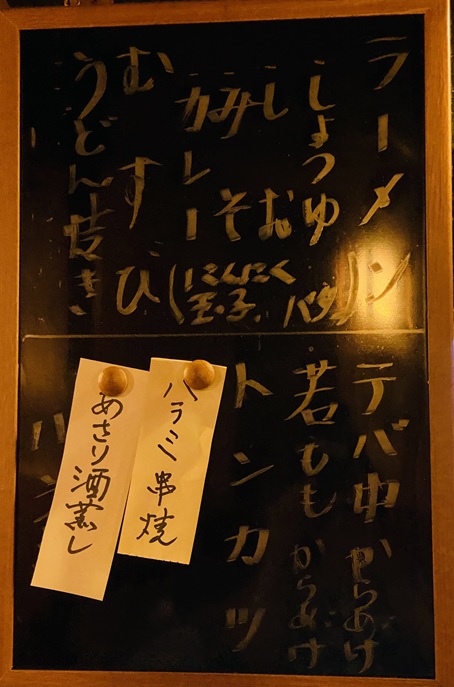 ラーメン
しょうゆ
しお
みそ
カレー
(にんにく
玉子、バター)
むすび
うどん焼き
テバ中からあげ
若ももからあげ
トンカツ
ハラミ串焼
あさり酒蒸し